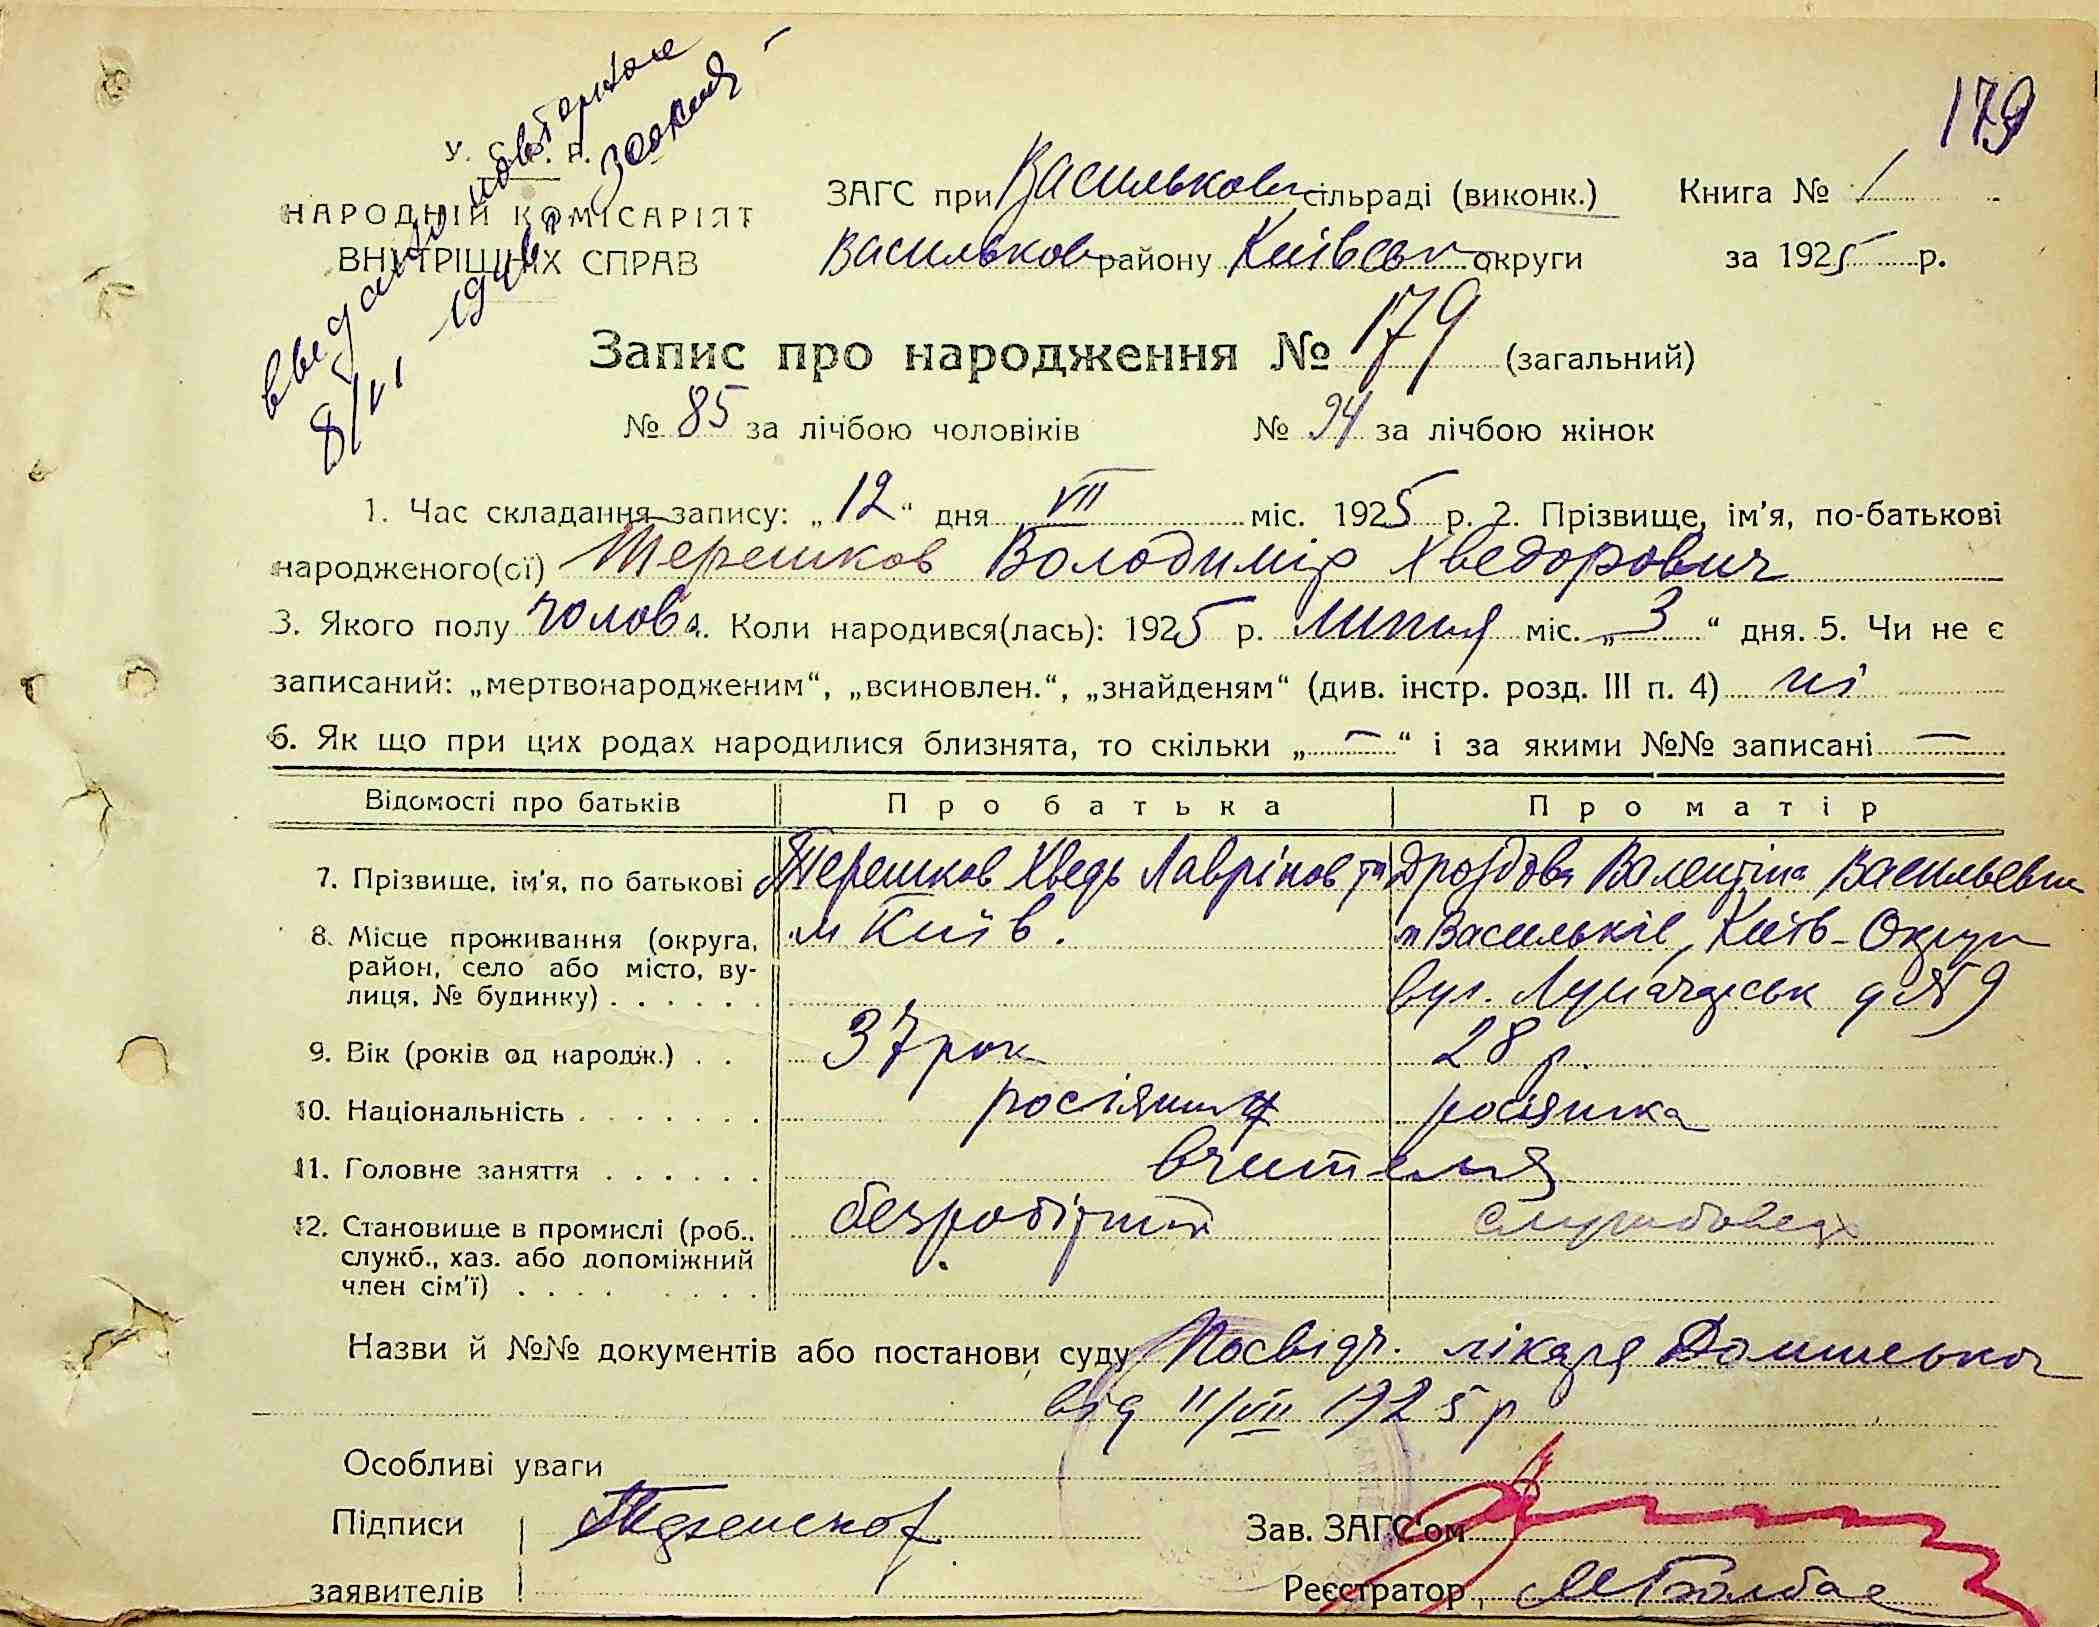 179
выдано повторное
8/VI 1946 г.
У. С. Р. Р.
НАРОДНІЙ КОМІСАРІЯТ
ВНУТРІШНІХ СПРАВ
ЗАГС при Васильков сільраді (виконк.) Книга № 1
Васильков району Київськ округи за 1925 р.
Запис про народження № 179 (загальний)
№ 85 за лічбою чоловіків № 94 за лічбою жінок
1. Час складання запису: „12“ дня VII міс. 1925 р. 2. Прізвище, ім'я, по-батькові
народженого(сї) Терешков Володимір Хведорович
3. Якого полу чолов 4. Коли народився(лась): 1925 р. липня міс. „3“ дня. 5. Чи не є
записаний: „мертвонародженим“, „всиновлен.“, „знайденям“ (див. інстр. розд. III п. 4) ні
6. Як що при цих родах народилися близнята, то скільки „—“ і за якими №№ записані —
Відомості про батьків Про батька Про матір
7. Прізвище, ім'я, по батькові Терешков Хведь Лаврінов Дроздова Валентіна Васильевна
8. Місце проживання (округа, м Київ. м Васильків, Київ-Округи
район, село або місто, ву- вул. Луначарськ д № 9
лиця, № будинку) . . . . . .
9. Вік (років од народж.) . . 37 рок 28 р.
10. Національність . . . . . . . росіянин росіянка
11. Головне заняття . . . . . . вчителя
12. Становище в промислі (роб., безробітний службовець
служб., хаз. або допоміжний
член сім'ї) . . . . . . . . .
Назви й №№ документів або постанови суду Посвідч. лікаря
від 11/VII 1925 р
Особливі уваги
Підписи Терешков Зав. ЗАГС'ом
заявителів Реєстратор